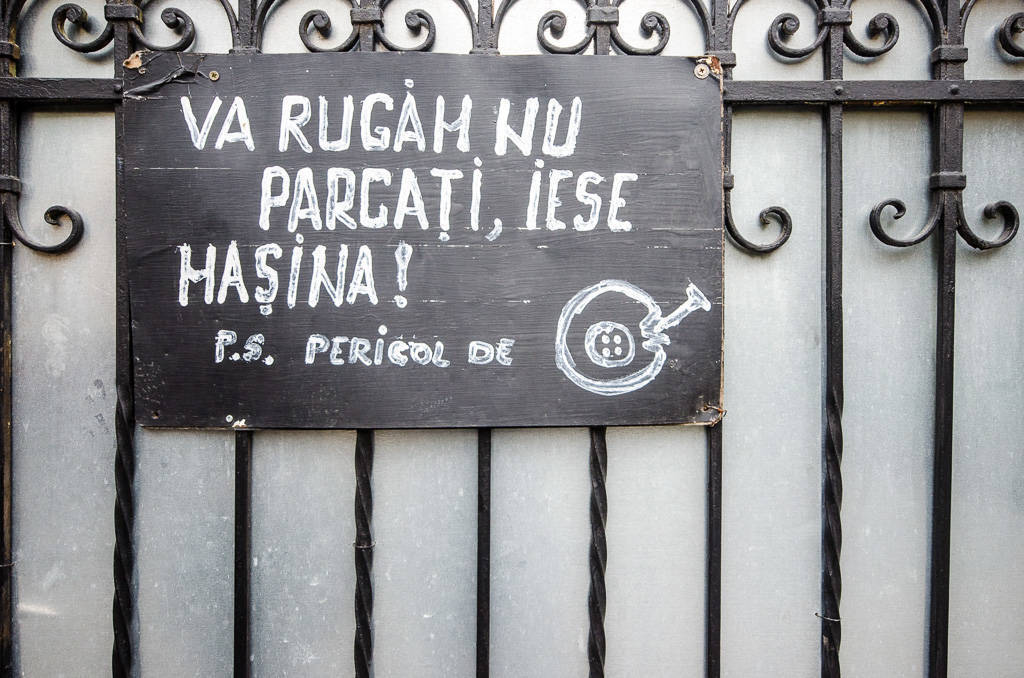 VA RUGȦM NU
PARCAȚİ, İESE
MAȘİNA!
P.S. PERİCOL DE